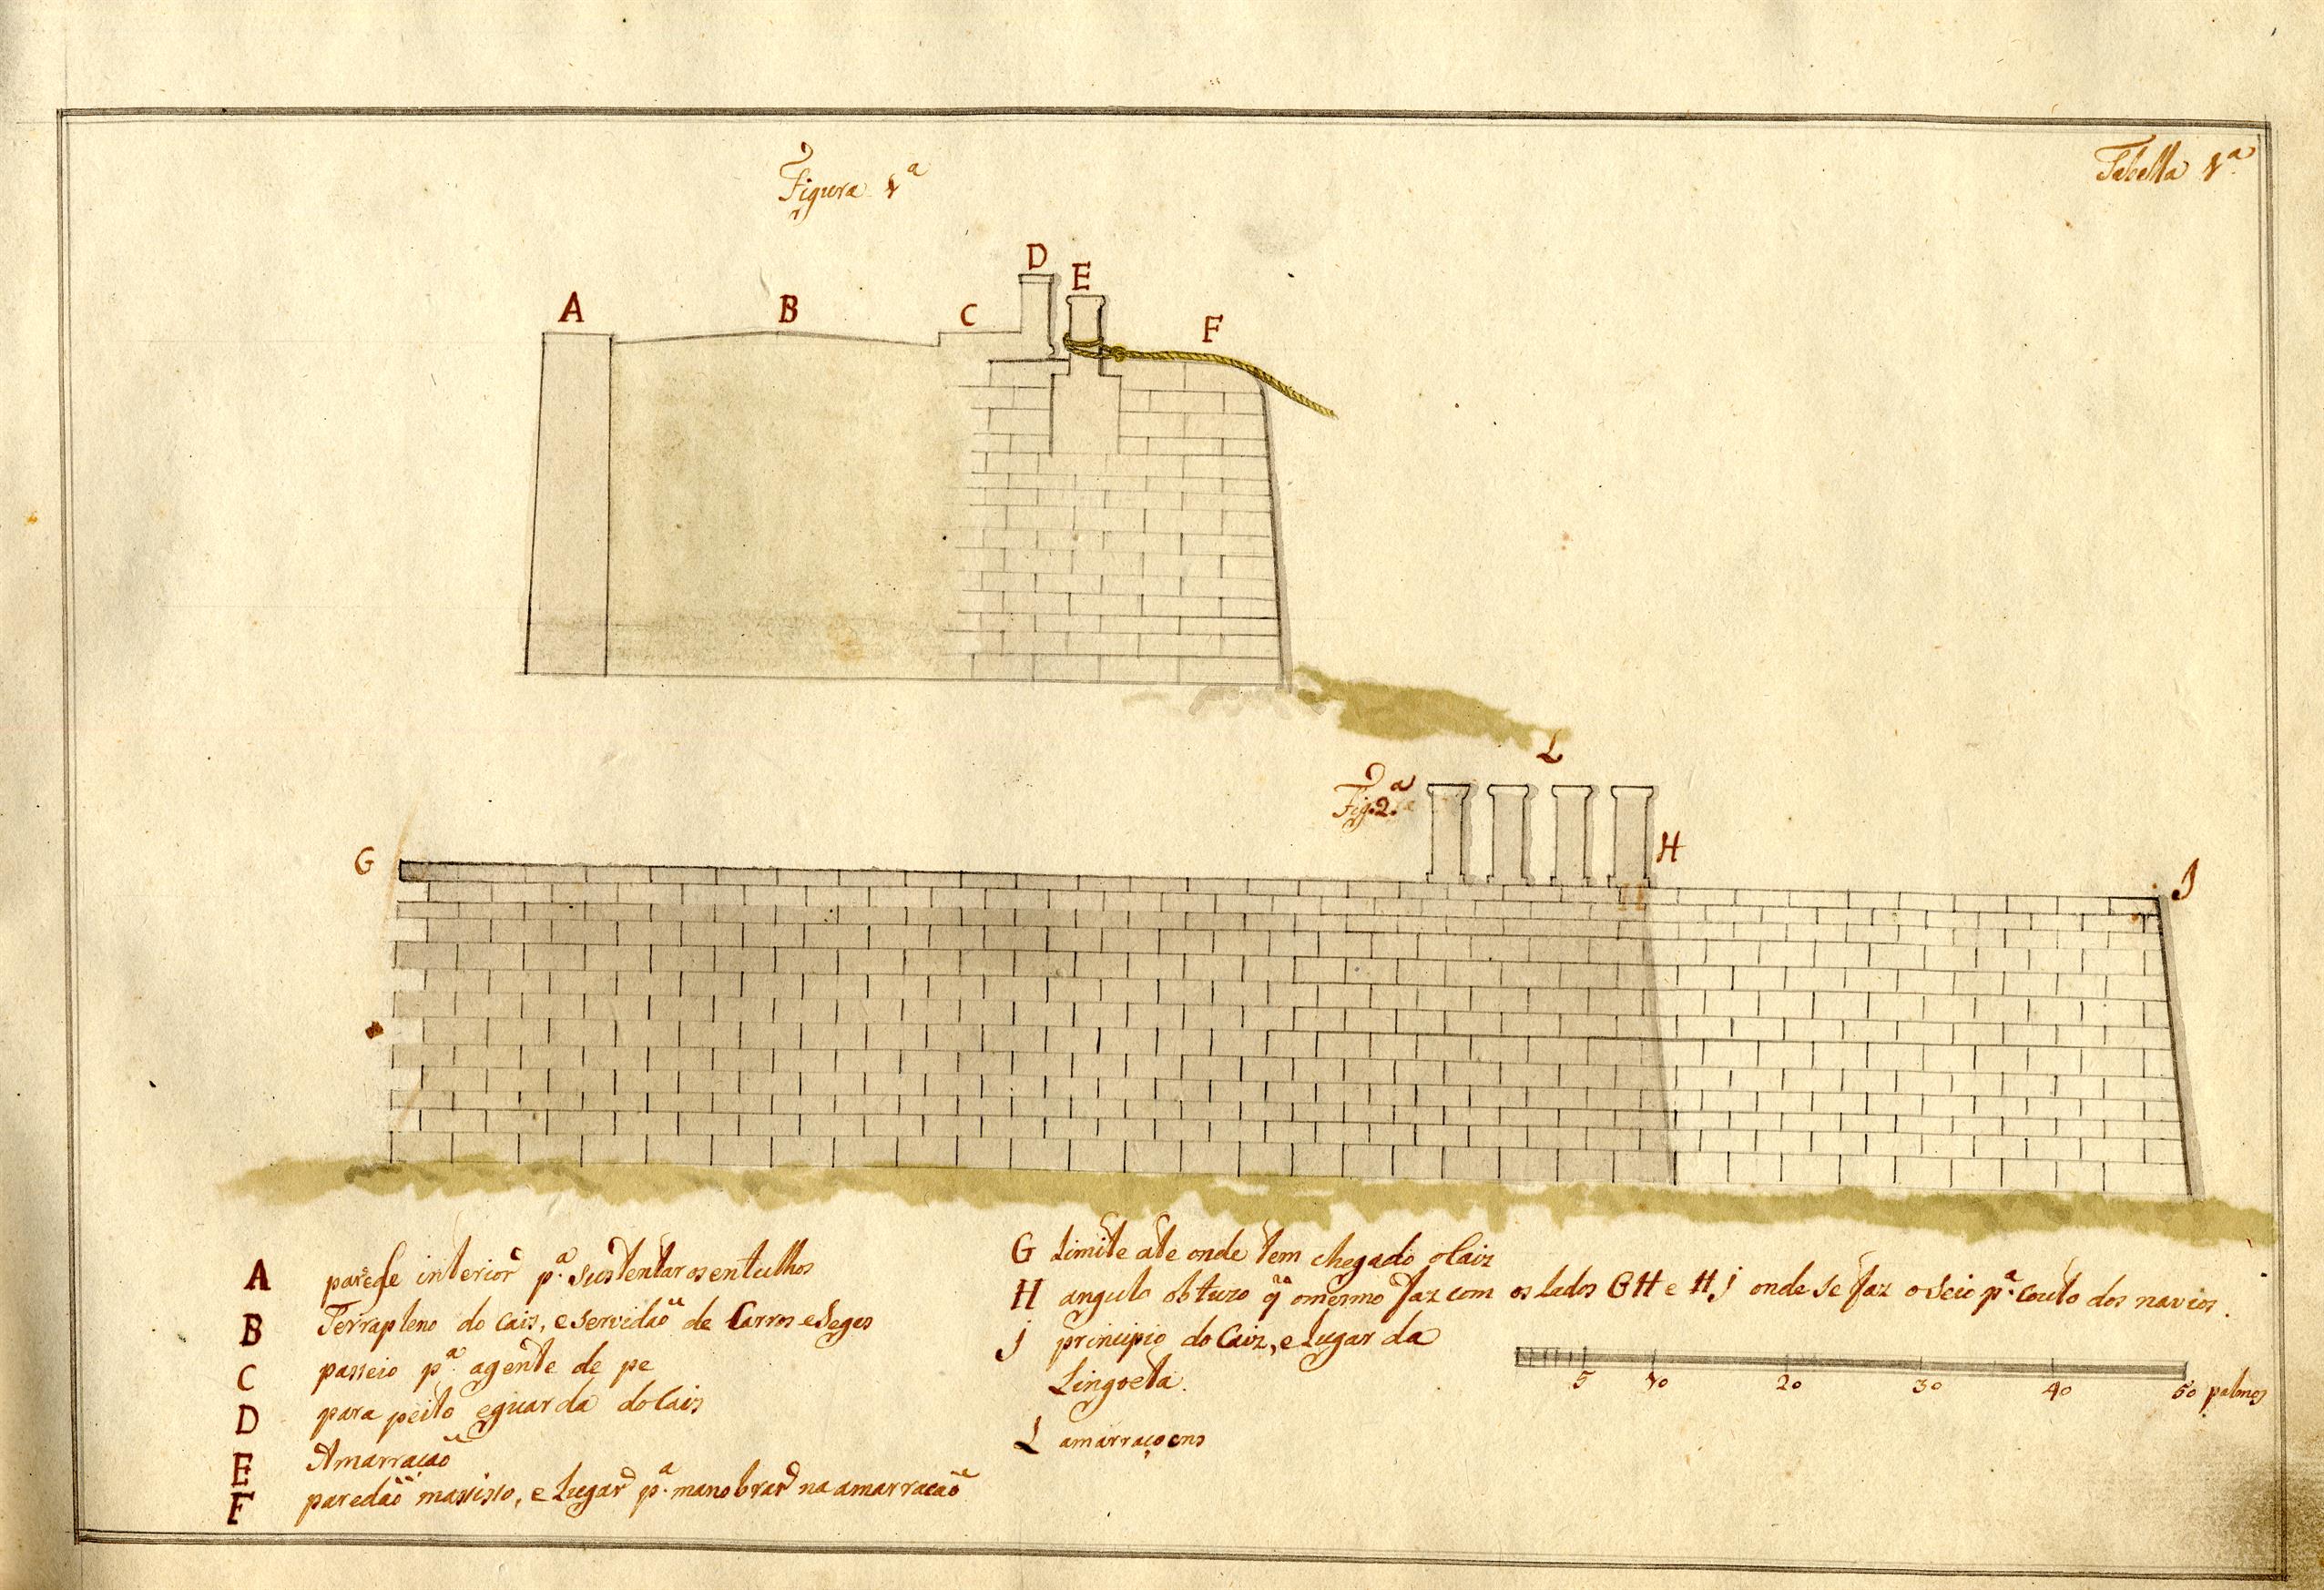 Tabella 1ª
Figura 1ª
A
B
C
D
E
F
L
Fig. 2.ª
G
H
J
A parede interior p.ª sustentar os entulhos
B Terrapleno do Cais, e servidaõ de Carros e Seges
C passeio p.ª agente de pe
D para peito eguarda do Cais
E Amarraçaõ
F paredaõ massisso, e Lugar p.ª manobrar na amarracaõ
G Limite ate onde tem chegado o Caiz
H angulo obtuzo q̃ omesmo faz com os Lados GH e HJ onde se faz o Seio p.ª couto dos navios.
J principio do Caiz, e Lugar da
Lingoeta.
L amarraçoens
5 10 20 30 40 50 palmos